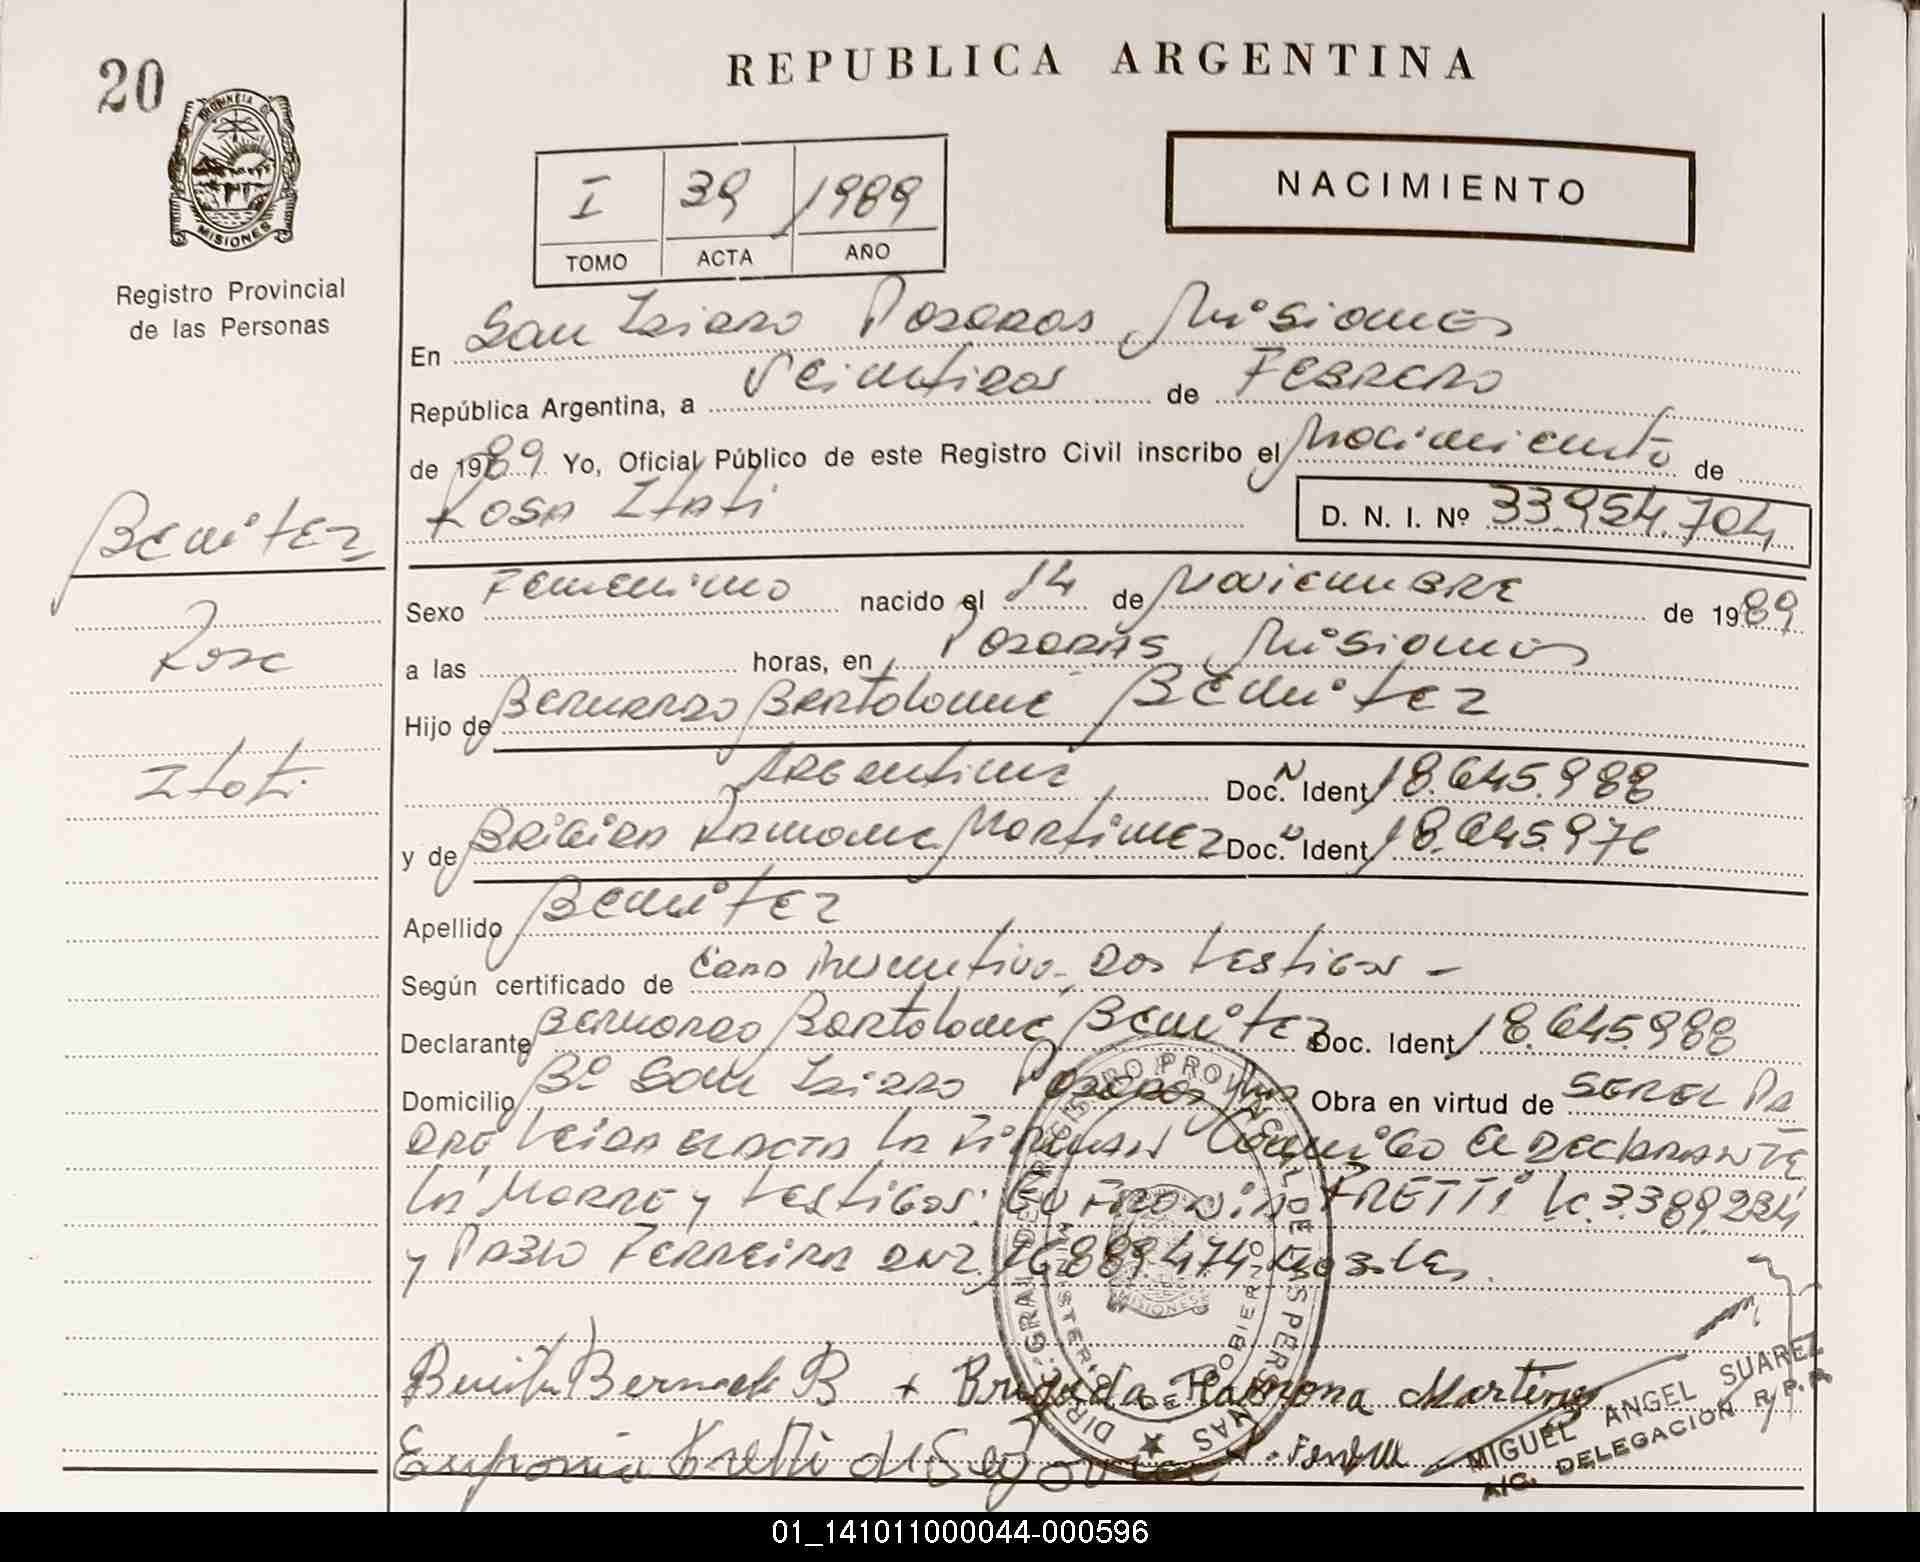 20
REPUBLICA ARGENTINA
PROVINCIA DE
MISIONES
Registro Provincial
de las Personas
I 39 1989
TOMO ACTA AÑO
NACIMIENTO
En San Isidro Posadas Misiones
República Argentina, a Veintidos de Febrero
de 1989 Yo, Oficial Público de este Registro Civil inscribo el Nacimiento de
Rosa Itati
D. N. I. Nº 33.954.704
Benitez
Rosa
Itati
Sexo Femenino nacido el 14 de Noviembre de 1989
a las horas, en Posadas Misiones
Hijo de Bernardo Bartolomé Benitez
Argentina Doc. N Ident 18.645.988
y de Brigida Ramona Martinez Doc. Nº Ident 18.645.976
Apellido Benitez
Según certificado de dos testigos -
Declarante Bernardo Bartolomé Benitez Doc. Ident 18.645.988
Domicilio Bº San Isidro Posadas Mns Obra en virtud de SER EL PA
DRE Leida el acta la Firman Conmigo El Declarante
la Madre y testigos: FRETTI lc. 3.389.234
y Pablo Ferreira DNI. 16.889.474
Benitez Bernardo B + Brigida Ramona Martinez
Eufronia Fretti de Segovia
DIR. GRAL. DEL REGISTRO PROVINCIAL DE LAS PERSONAS
MINISTERIO DE GOBIERNO
MISIONES
MIGUEL ANGEL SUAREZ
A/C. DELEGACION R. P. P.
01_141011000044-000596